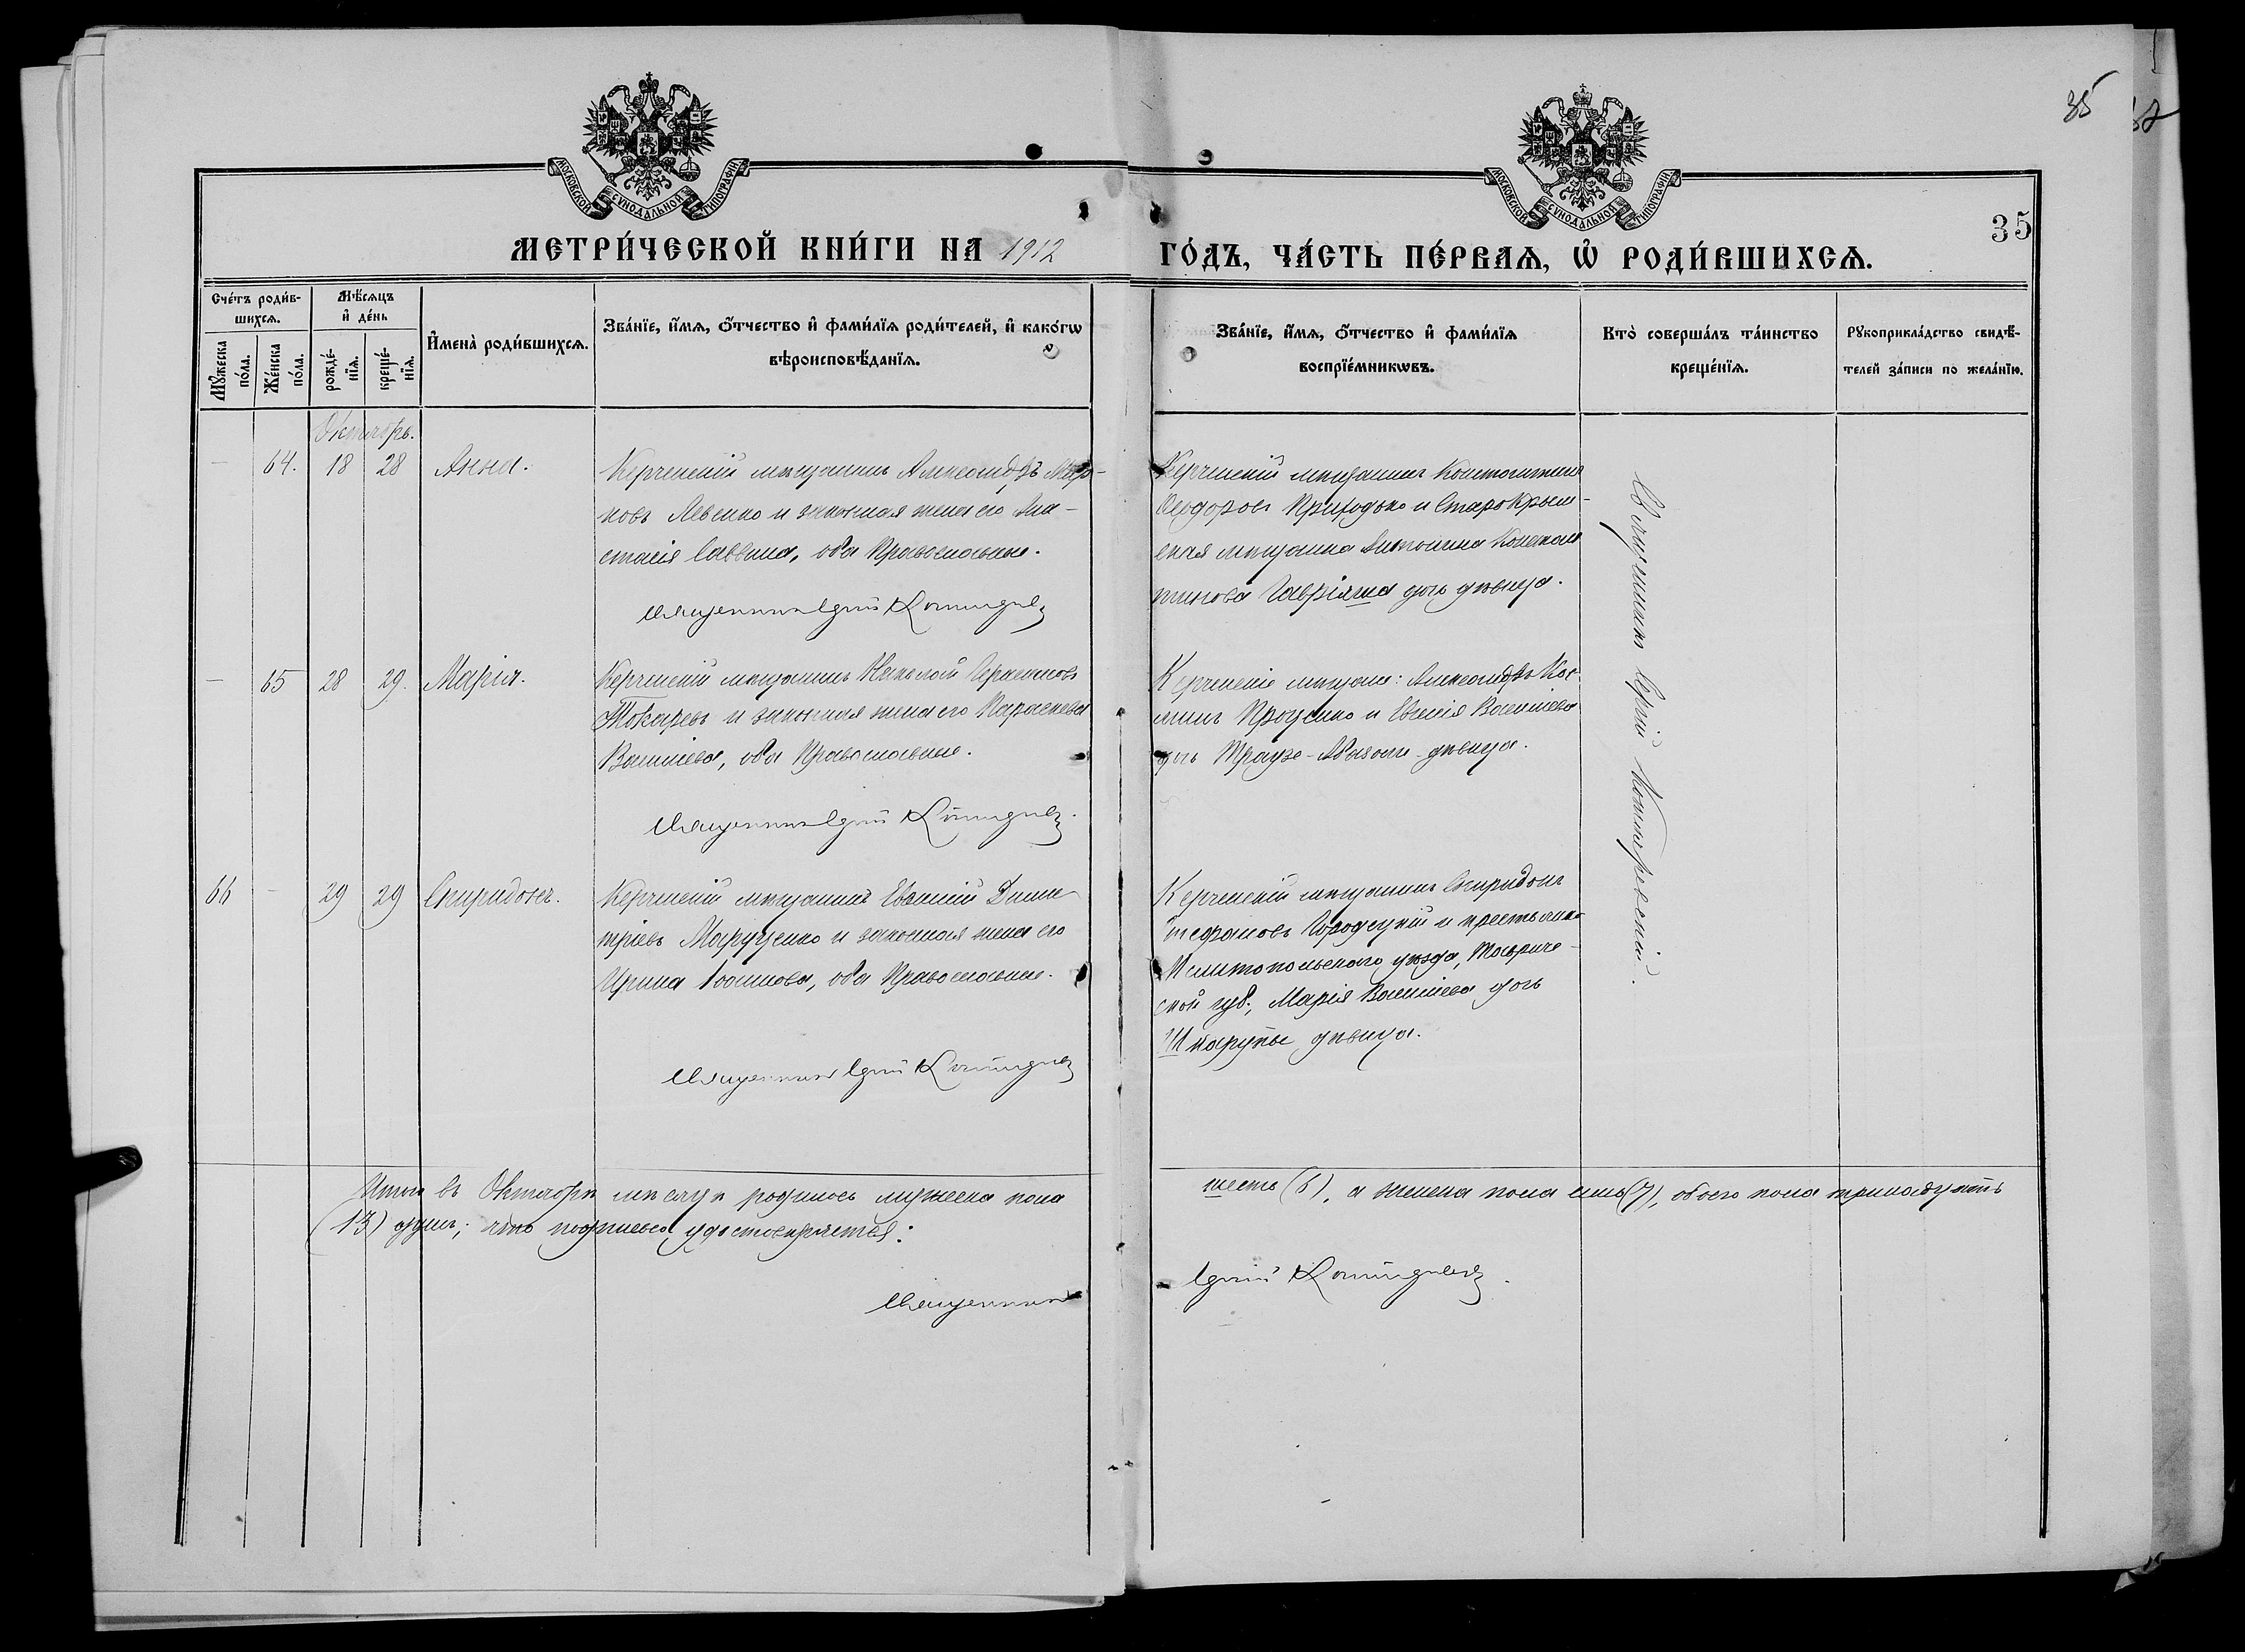 35
МОСКОВСКОЙ СѴНОДАЛЬНОЙ ТИПОГРАФІИ
МОСКОВСКОЙ СѴНОДАЛЬНОЙ ТИПОГРАФІИ
35
МЕТРИ́ЧЕСКОЙ КНИ́ГИ НА 1912
ГО́ДЪ, ЧА́СТЬ ПЕ́РВАѦ, Ѡ҆ РОДИ́ВШИХСѦ.
Сче́тъ роди́в-
шихсѧ.
Мꙋжеска по́ла.
Же́нска по́ла.
Мѣ́сѧцъ
и҆ де́нь
рожде́-
нїѧ.
креще́-
нїѧ.
И҆мена̀ роди́вшихсѧ.
Зва́нїе, и҆́мѧ, ѻ҆́тчество и҆ фами́лїѧ роди́телей, и҆ како́гѡ
вѣроисповѣ́данїѧ.
Зва́нїе, и҆́мѧ, ѻ҆́тчество и҆ фами́лїѧ
воспрїе́мникѡвъ.
Кто̀ соверша́лъ та́инство
креще́нїѧ.
Рꙋкоприкла́дство свидѣ́-
телей за́писи по жела́нїю.
Октябрь.
— 64. 18 28 Анна.
Керченскій мѣщанинъ Александръ Мар-
ковъ Левенко и законная жена его Ана-
стасія Саввина, оба Православные.
Священникъ Сергій
Керченскій мѣщанинъ Константинъ
Ѳеодоровъ Приходько и Старокрым-
ская мѣщанка Антонина Констан
тинова дочь дѣвица.
— 65 28 29. Марія.
Керченскій мѣщанинъ Николай Герасимовъ
Токаревъ и законная жена его Параскева
Васильева, оба Православные.
Священникъ Сергій
Керченскіе мѣщане: Александръ Кос-
минъ Проценко и Евгенія Васильева
дочь дѣвица.
66 — 29 29 Спиридонъ.
Керченскій мѣщанинъ Евѳимій Дими-
тріевъ Марущенко и законная жена его
Ирина оба Православные.
Священникъ Сергій
Керченскій мѣщанинъ Спиридонъ
Стефановъ Городецкій и крестьянка
Мелитопольскаго уѣзда, Тавриче-
ской губ., Марія Васильева дочь
дѣвица.
Священникъ Сергій
Итого въ Октябрѣ мѣсяцѣ родилось мужеска пола
шесть (6), а женска пола семь (7), обоего пола тринадцать
(13) душъ; что подписью удостовѣряется:
Священникъ
Сергій